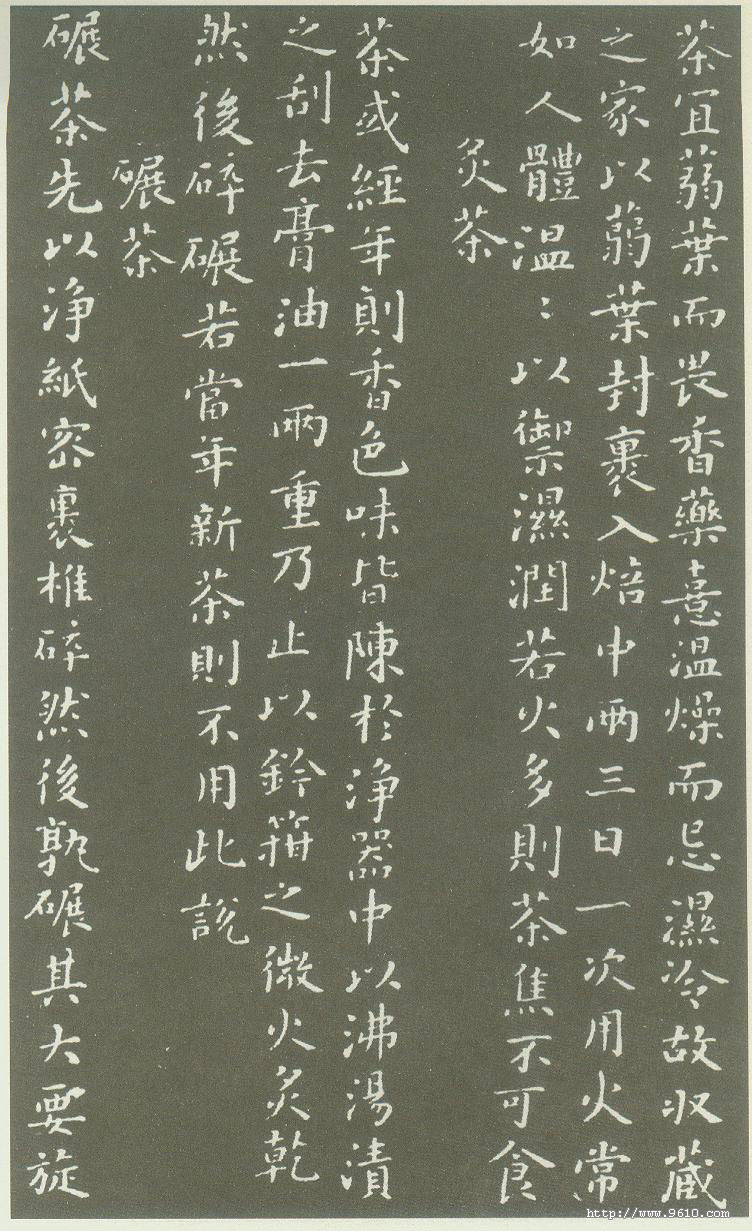 茶宜蒻葉而畏香藥憙温燥而忌濕冷故収藏
之家以蒻葉封裹入焙中兩三日一次用火常
如人體温〻以禦濕潤若火多則茶焦不可食
炙茶
茶或經年則香色味皆陳於淨器中以沸湯漬
之刮去膏油一兩重乃止以鈐箝之微火炙乾
然後碎碾若當年新茶則不用此說
碾茶
碾茶先以淨紙密裹椎碎然後孰碾其大要旋
http://www.9610.com